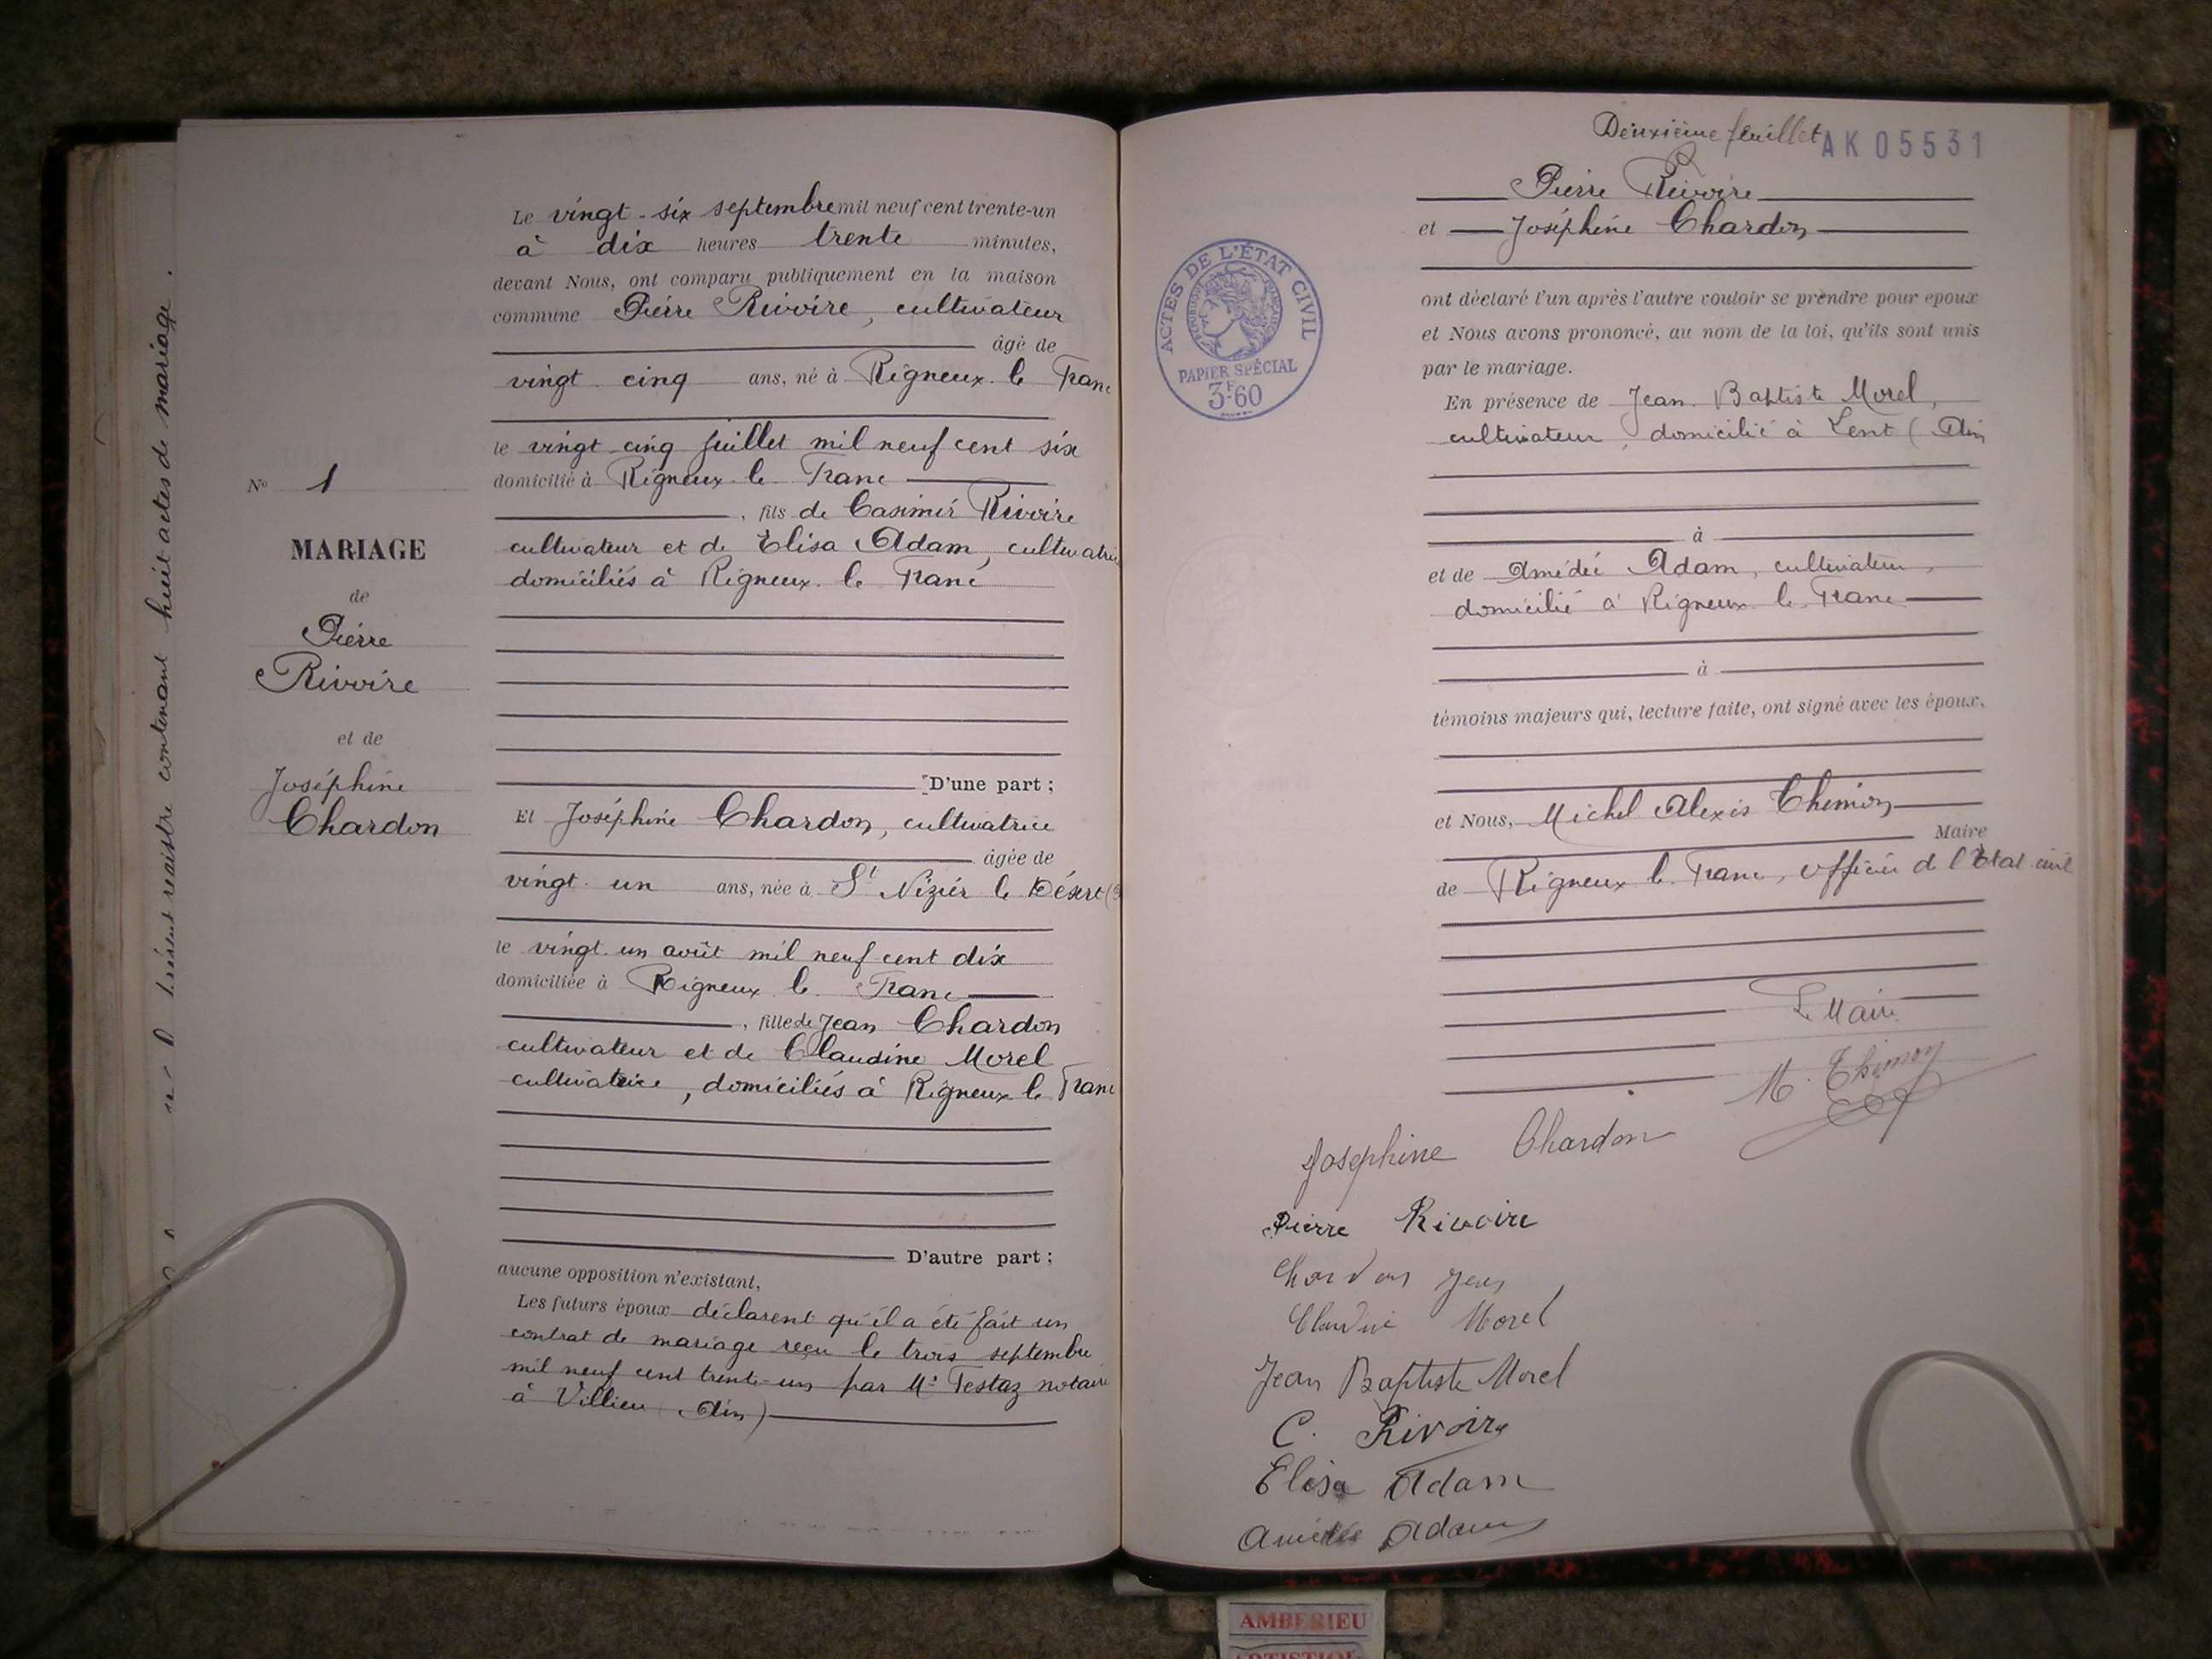 présent registre contenant huit actes de mariage.
N° 1
MARIAGE
de
Pierre
Rivoire
et de
Joséphine
Chardon
Le vingt-six septembre mil neuf cent trente-un
à dix heures trente minutes,
devant Nous, ont comparu publiquement en la maison
commune Pierre Rivoire, cultivateur
âgé de
vingt cinq ans, né à Rigneux le Franc
le vingt-cinq juillet mil neuf cent six
domicilié à Rigneux le Franc
, fils de Casimir Rivoire
cultivateur et de Elisa Adam, cultivatrice
domiciliés à Rigneux le Franc
D'une part ;
Et Joséphine Chardon, cultivatrice
âgée de
vingt un ans, née à St Nizier le Désert
le vingt un août mil neuf cent dix
domiciliée à Rigneux le Franc
, fille de Jean Chardon
cultivateur et de Claudine Morel
cultivatrice, domiciliés à Rigneux le Franc
D'autre part ;
aucune opposition n'existant,
Les futurs époux déclarent qu'il a été fait un
contrat de mariage reçu le trois septembre
mil neuf cent trente-un par Me Testaz notaire
à Villieu (Ain)
Deuxième feuillet AK05531
ACTES DE L'ÉTAT CIVIL
RÉPUBLIQUE FRANÇAISE
PAPIER SPÉCIAL
3F60
Pierre Rivoire
et Joséphine Chardon
ont déclaré l'un après l'autre vouloir se prendre pour époux
et Nous avons prononcé, au nom de la loi, qu'ils sont unis
par le mariage.
En présence de Jean Baptiste Morel,
cultivateur, domicilié à Lent (Ain
à
et de Amédée Adam, cultivateur,
domicilié à Rigneux le Franc
à
témoins majeurs qui, lecture faite, ont signé avec les époux,
et Nous, Michel Alexis Thimon
Maire
de Rigneux le Franc, officier de l'Etat civil
Le Maire
M. Thimon
Josephine Chardon
Pierre Rivoire
Chardon Jean
Claudine Morel
Jean Baptiste Morel
C. Rivoire
Elisa Adam
Amédée Adam
AMBERIEU
ARTISTIQUE